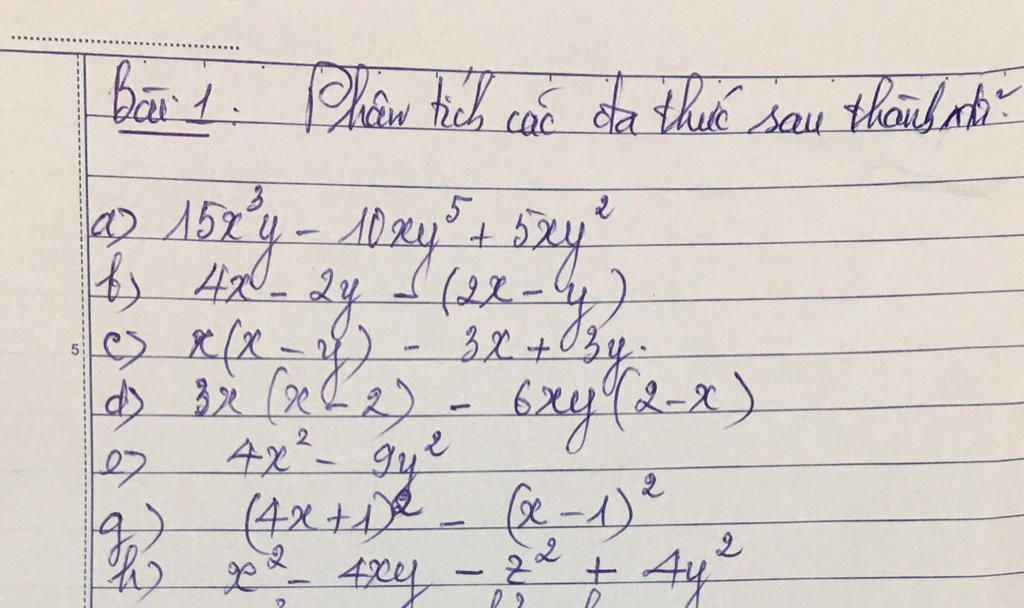 Bài 1: Phân tích các đa thức sau thành nhân tử
a) 15x³y - 10xy⁵ + 5xy²
b) 4x - 2y - (2x - y)
c) x(x - y) - 3x + 3y.
5
d) 3x (x - 2) - 6xy (2 - x)
e) 4x² - 9y²
g) (4x + 1)² - (x - 1)²
h) x² - 4xy - z² + 4y²